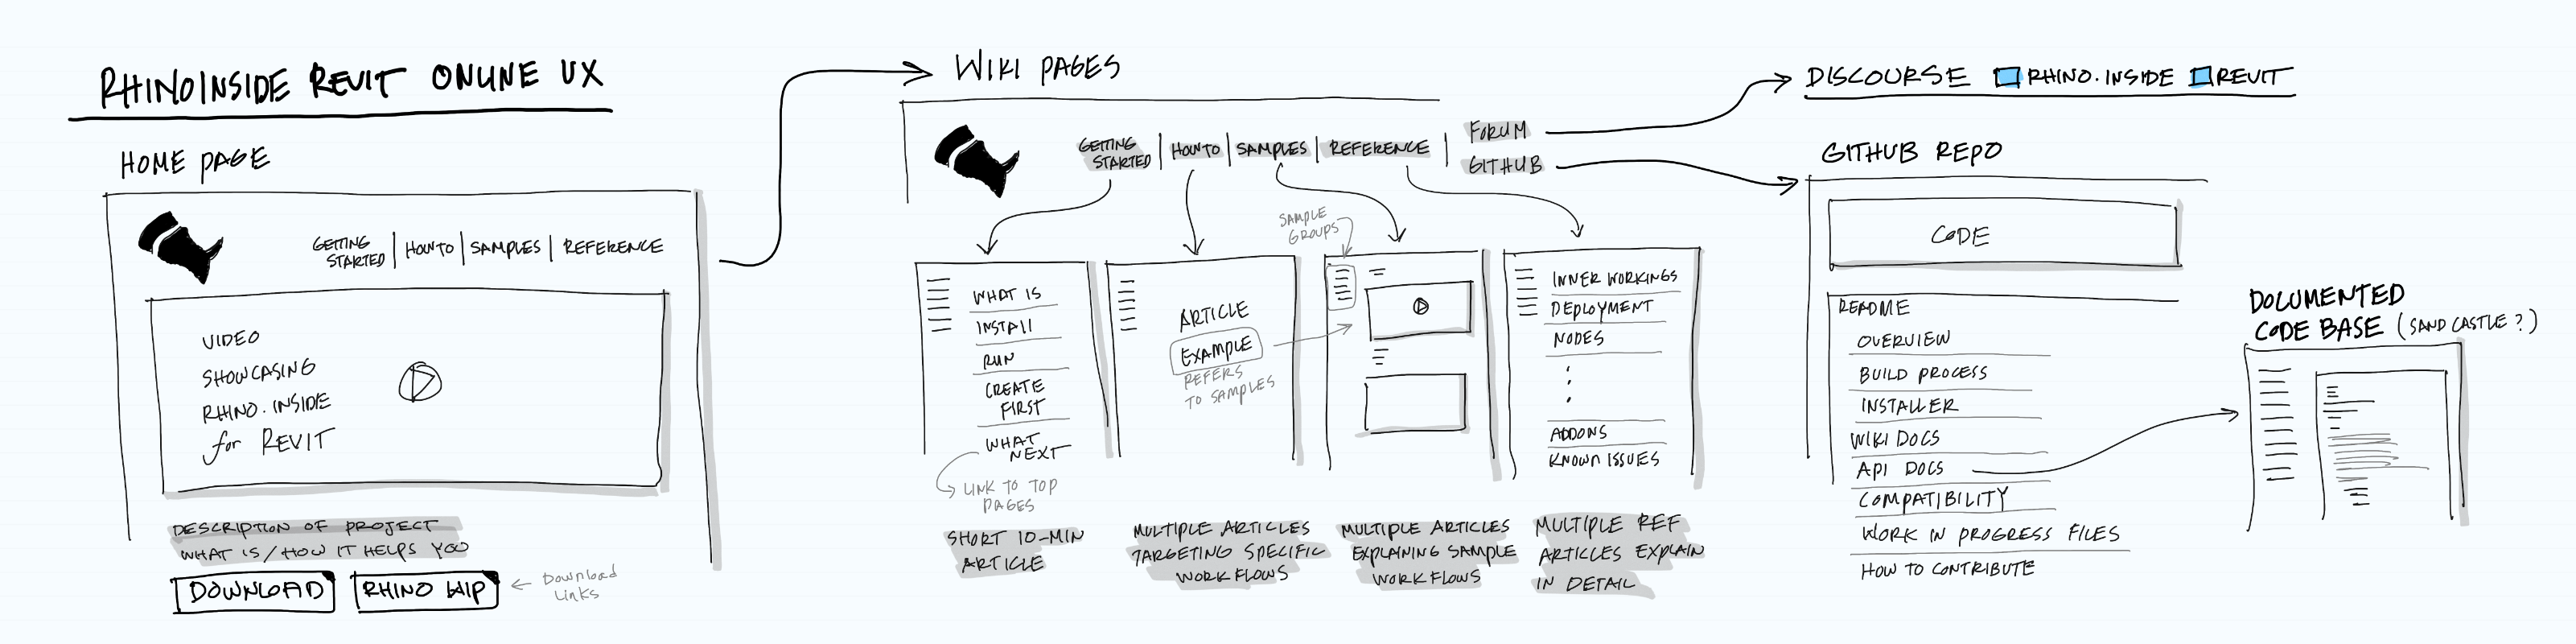 RHINOINSIDE REVIT ONLINE UX
HOME PAGE
GETTING STARTED | HOWTO | SAMPLES | REFERENCE
VIDEO
SHOWCASING
RHINO.INSIDE
for REVIT
DESCRIPTION OF PROJECT
WHAT IS/HOW IT HELPS YOU
DOWNLOAD
RHINO WIP
Download
Links
WIKI PAGES
GETTING STARTED | HOWTO | SAMPLES | REFERENCE |
FORUM
GITHUB
WHAT IS
INSTALL
RUN
CREATE
FIRST
WHAT
NEXT
LINK TO TOP
PAGES
SHORT 10-MIN
ARTICLE
ARTICLE
EXAMPLE
REFERS
TO SAMPLES
MULTIPLE ARTICLES
TARGETING SPECIFIC
WORKFLOWS
SAMPLE
GROUPS
MULTIPLE ARTICLES
EXPLAINING SAMPLE
WORKFLOWS
INNER WORKINGS
DEPLOYMENT
NODES
ADDONS
KNOWN ISSUES
MULTIPLE REF
ARTICLES EXPLAIN
IN DETAIL
DISCOURSE RHINO.INSIDE REVIT
GITHUB REPO
CODE
README
OVERVIEW
BUILD PROCESS
INSTALLER
WIKI DOCS
API DOCS
COMPATIBILITY
WORK IN PROGRESS FILES
HOW TO CONTRIBUTE
DOCUMENTED
CODE BASE (SAND CASTLE?)